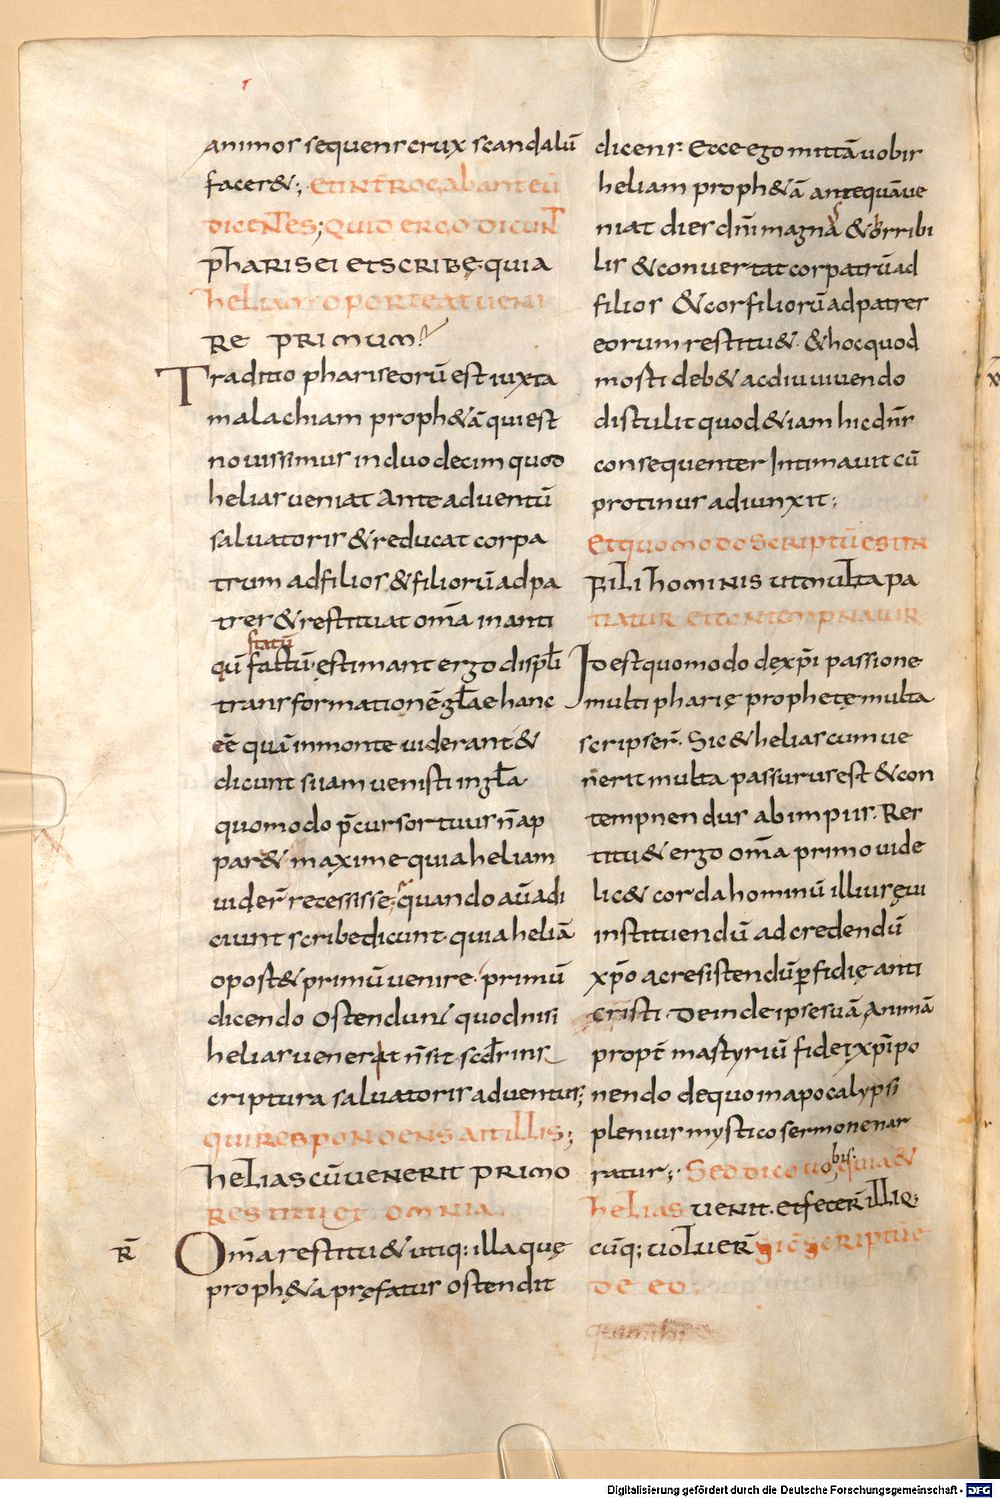 animos sequens crux scandalū
facer&; et interrogabant eū
dicentes; quid ergo dicunt
pharisei et scribę quia
heliam oporteat veni
re primum?
Traditio phariseorū est iuxta
malachiam proph&ā qui est
novissimus in duodecim quod
helias veniat ante adventū
salvatoris & reducat cor pa
trum ad filios & filiorū ad pa
tres & restituat om̄a in anti
statū
qū factū· ęstimant ergo discipl̄i
transformationē gl̄ae hanc
eē quā in monte viderant &
dicunt si iam venisti in gl̄a
quomodo p̄cursor tuus n̄ ap
par& maxime quia heliam
vider̄ recessisse; quando aū adi
ciunt scribe dicunt quia heliā
oport& primū venire· primū
dicendo ostendunt quod nisi
helias venerat n̄ sit scd̄ ins
criptura salvatoris adventus;
qui respondens ait illis;
helias cū venerit primo
restituet omnia.
R̄
Om̄a restitu& utiq; illa quę
proph&a pręfatur ostendit
dicens· Ecce ego mittā vobis
heliam proph&ā antequā ve
niat dies dn̄i magnus & horribi
lis & convertat cor patrū ad
filios & cor filiorū ad patres
eorum restitu& · & hoc quod
mosti deb& ac diu vivendo
distulit quod & iam hic dn̄s
consequenter intimavit cū
protinus adiunxit;
Et quomodo scriptū est in
filī hominis ut multa pa
tiatur et contempnatur
Id est quomodo de xp̄i passione
multi pharię prophetę multa
scripser̄· Sic & helias cum ve
nerit multa passurus est & con
tempnendus ab impiis· Res
titu& ergo om̄a primo vide
lic& corda hominū illius ęvi
instituendū ad credendū
xp̄o ac resistendū p̄fidię anti
cristi· Deinde ipse suā animā
propt̄ mastyriū fidei xp̄i po
nendo de quo in apocalypsi
plenius mystico sermone nar
ratur; Sed dico vobis quia &
helias venit· et fecer̄ illi q̄
cūq; voluer̄ sic̄ scriptū ē
de eo